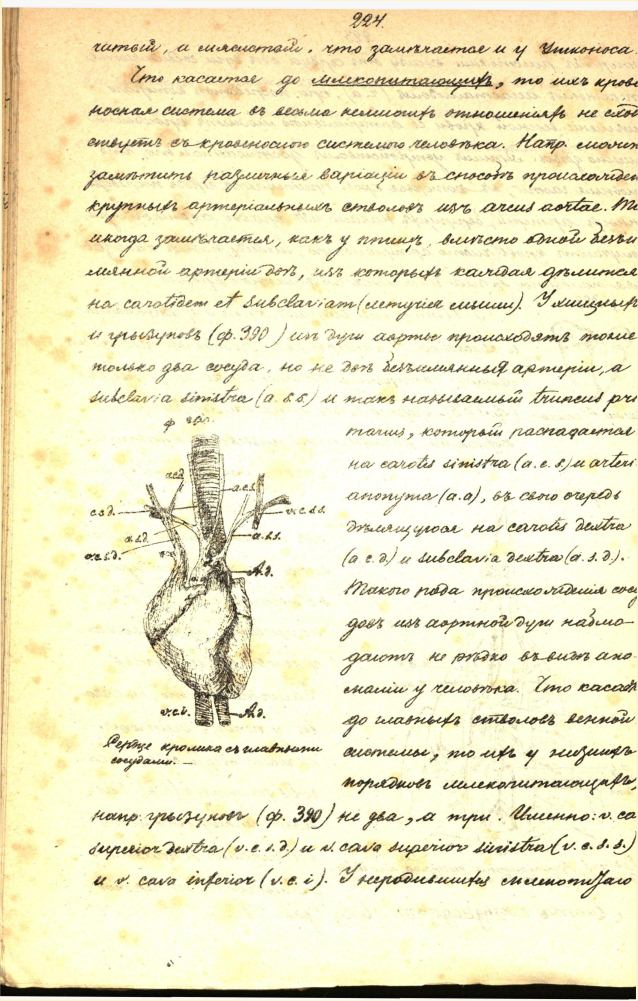 224.
чатый, а мясистый. что замѣчается и у утконоса.
Что касается до млекопитающихъ, то ихъ крове
носная система въ весьма немногихъ отношеніяхъ не сход
ствуетъ съ кровеносною системою человѣка. Напр. можно
замѣтить различныя варіаціи въ способѣ происхожден
крупныхъ артеріальныхъ стволовъ изъ arcus aortae.
иногда замѣчается, какъ у птицъ, вмѣсто одной безъи
мянной артеріи двѣ, изъ которыхъ каждая дѣлится
на carotidem et subclaviam (летучія мыши). У хищныхъ
и грызуновъ (ф. 390) изъ дуги аорты происходятъ также
только два сосуда, но не двѣ безъимянныя артеріи, а
subclavia sinistra (a. s. s.) и такъ называемый truncus pri
marius, который распадается
на carotis sinistra (a. c. s.) и arteri
anonyma (a. a), въ свою очередь
дѣлящуюся на carotis dextra
(a. c. d.) и subclavia dextra (a. s. d.).
Такого рода происхожденія сосу
довъ изъ аортной дуги наблю-
даютъ не рѣдко въ видѣ ано-
маліи у человѣка. Что касает
до главныхъ стволовъ венной
системы, то ихъ у низшихъ
порядковъ млекопитающихъ,
ф 390.
a.c.d.
a.c.s.
v.c.s.s.
a.s.d.
a.s.s.
v.c.s.d.
A.d.
v.c.i.
A.d.
Сердце кролика съ главными
сосудами. —
напр. грызуновъ (ф. 390) не два, а три. Именно: v. ca
superior dextra (v. c. s. d.) и v. cava superior sinistra (v. c. s. s.)
и v. cava inferior (v. c. i). У неродившихся млекопитаю